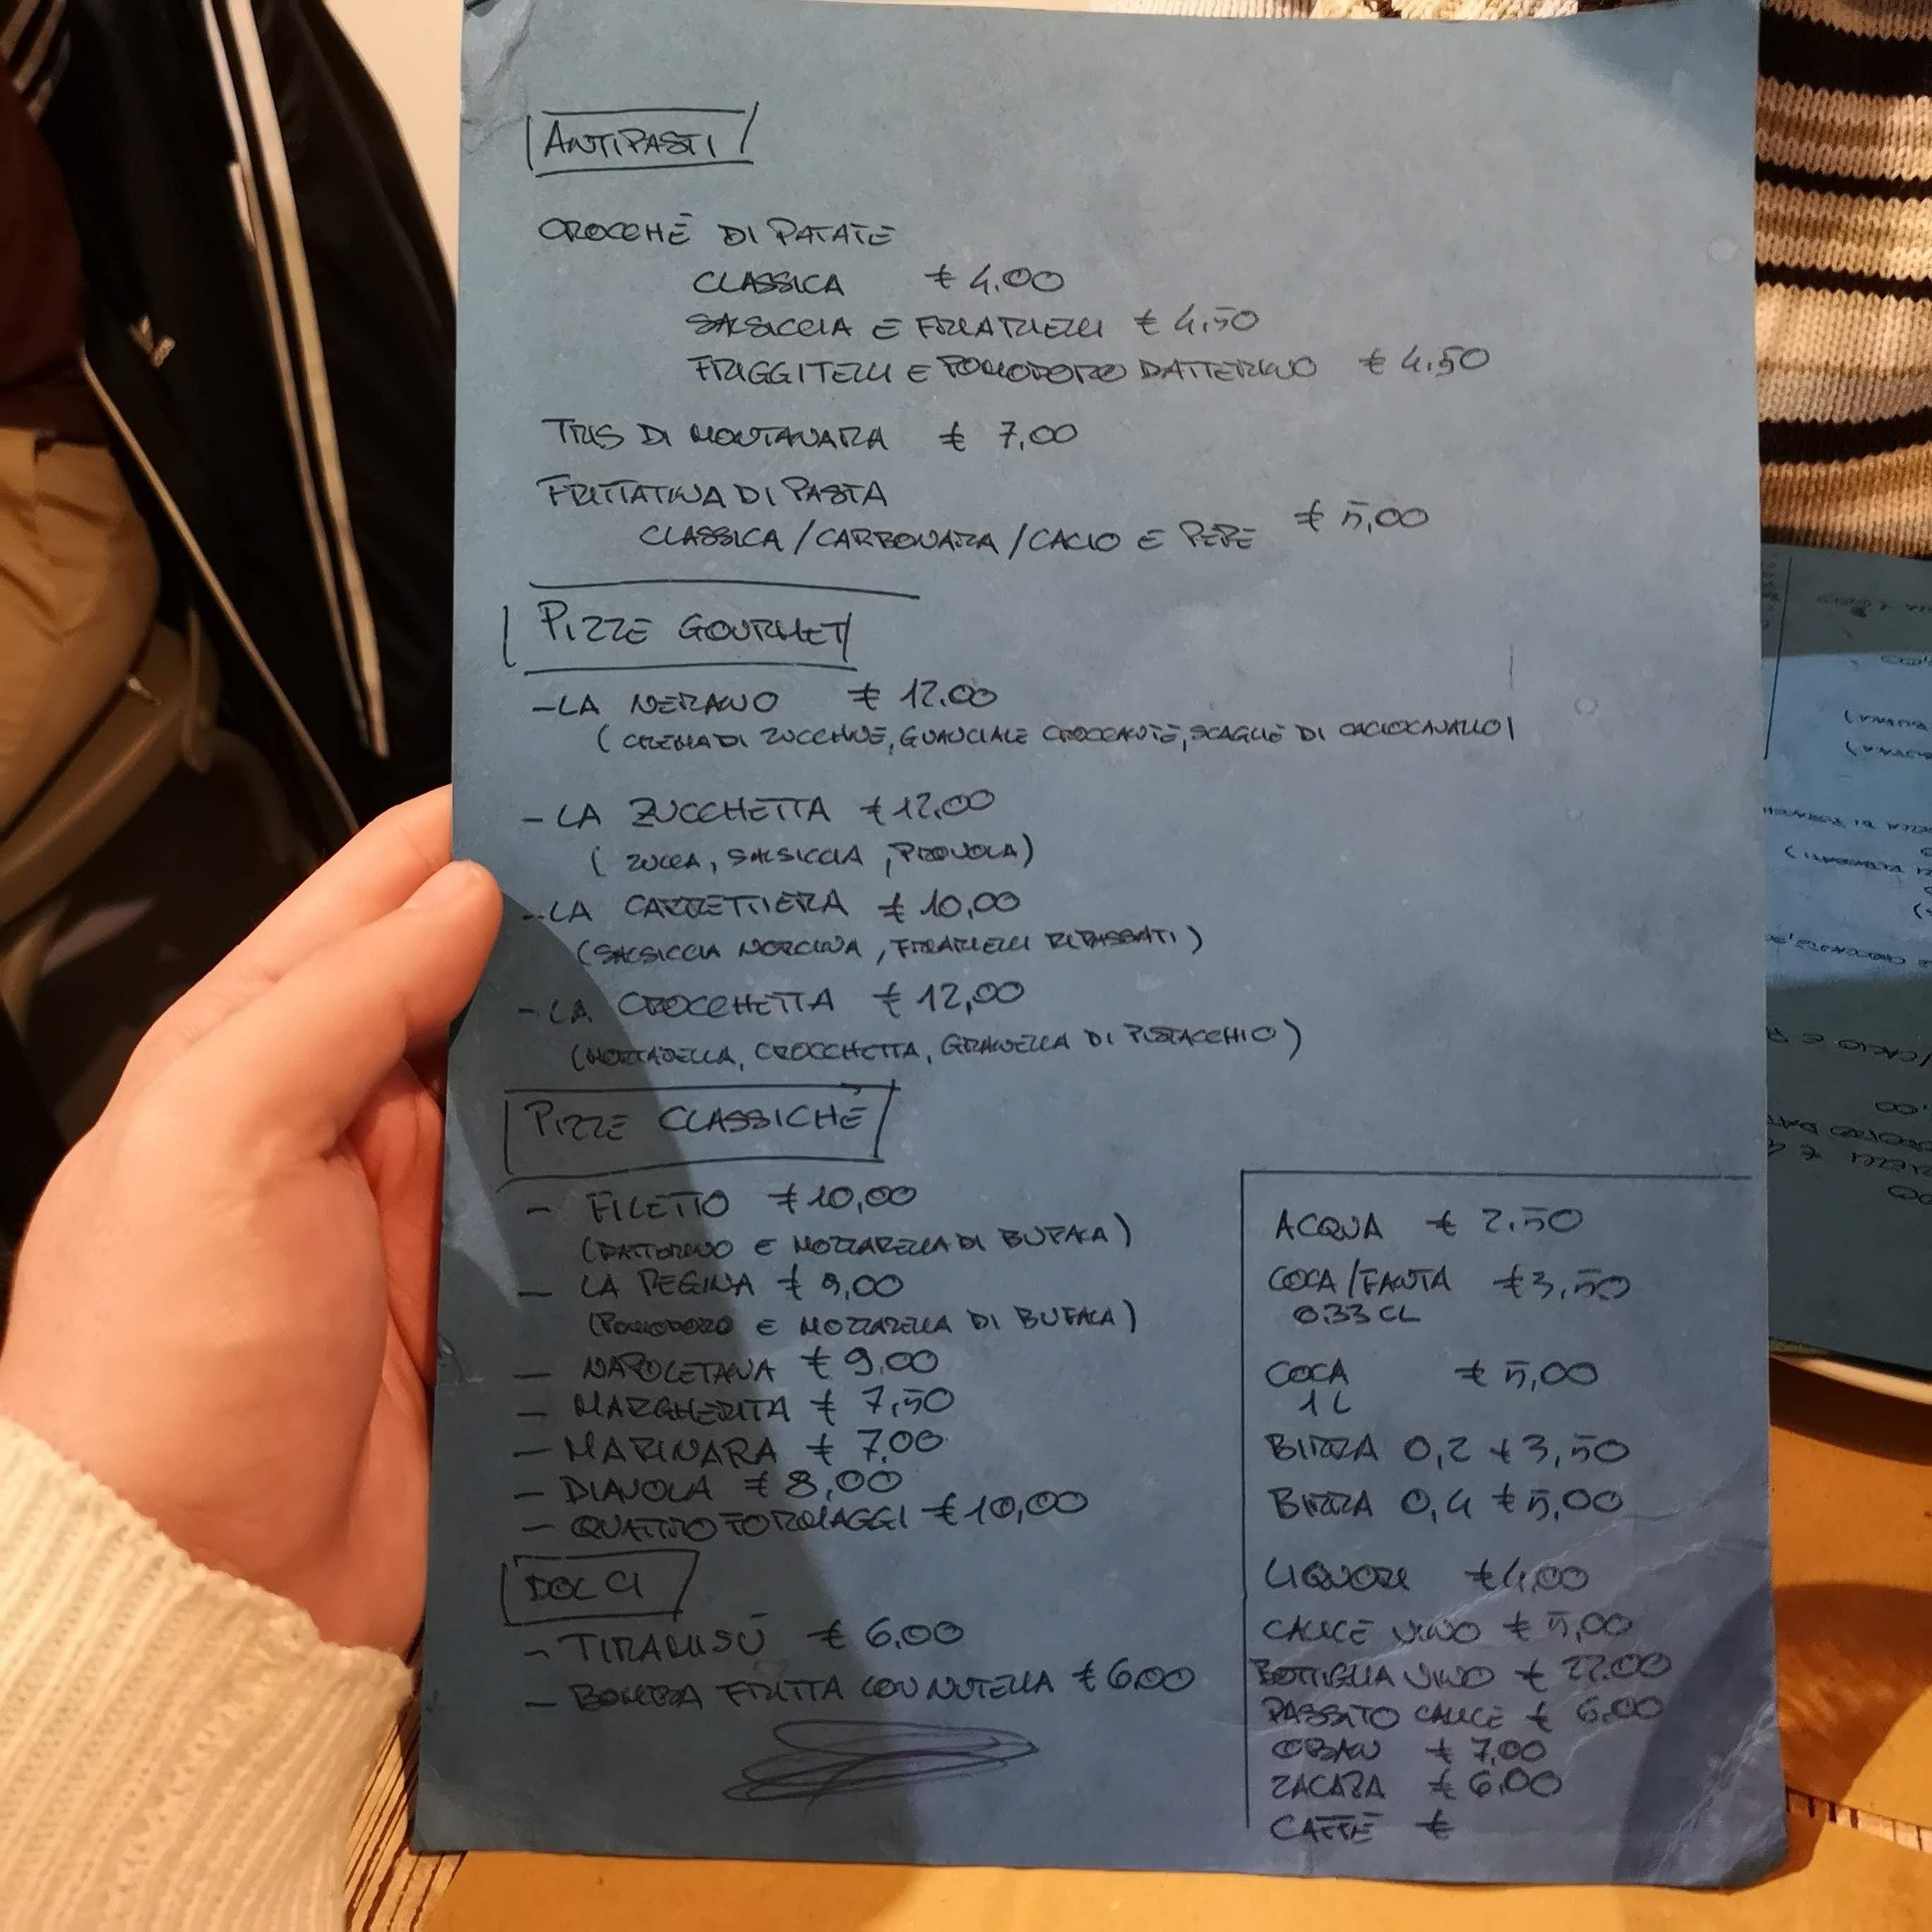 ANTIPASTI
CROCCHÈ DI PATATE
CLASSICA € 4,00
SALSICCIA E FRIARIELLI € 4,50
FRIGGITELLI E POMODORO DATTERINO € 4,50
TRIS DI MONTANARA € 7,00
FRITTATINA DI PASTA
CLASSICA / CARBONARA / CACIO E PEPE € 5,00
PIZZE GOURMET
- LA NERANO € 12.00
( CREMA DI ZUCCHINE, GUANCIALE CROCCANTE, SCAGLIE DI CACIOCAVALLO)
- LA ZUCCHETTA € 12.00
( ZUCCA, SALSICCIA, PROVOLA)
- LA CARRETTIERA € 10,00
(SALSICCIA NORCINA, FRIARIELLI RIPASSATI)
- LA CROCCHETTA € 12,00
(MORTADELLA, CROCCHETTA, GRANELLA DI PISTACCHIO)
PIZZE CLASSICHE
- FILETTO € 10,00
(DATTERINO E MOZZARELLA DI BUFALA)
- LA REGINA € 9,00
(POMODORO E MOZZARELLA DI BUFALA)
- NAPOLETANA € 9,00
- MARGHERITA € 7,50
- MARINARA € 7,00
- DIAVOLA € 8,00
- QUATTRO FORMAGGI € 10,00
DOLCI
- TIRAMISÙ € 6,00
- BOMBA FRITTA CON NUTELLA € 6,00
ACQUA € 2,50
COCA / FANTA € 3,50
0.33 CL
COCA € 5,00
1 L
BIRRA 0,2 € 3,50
BIRRA 0,4 € 5,00
LIQUORI € 4,00
CALICE VINO € 5,00
BOTTIGLIA VINO € 22.00
PASSITO CALICE € 6,00
OBAN € 7,00
ZACAPA € 6,00
CAFFÈ €